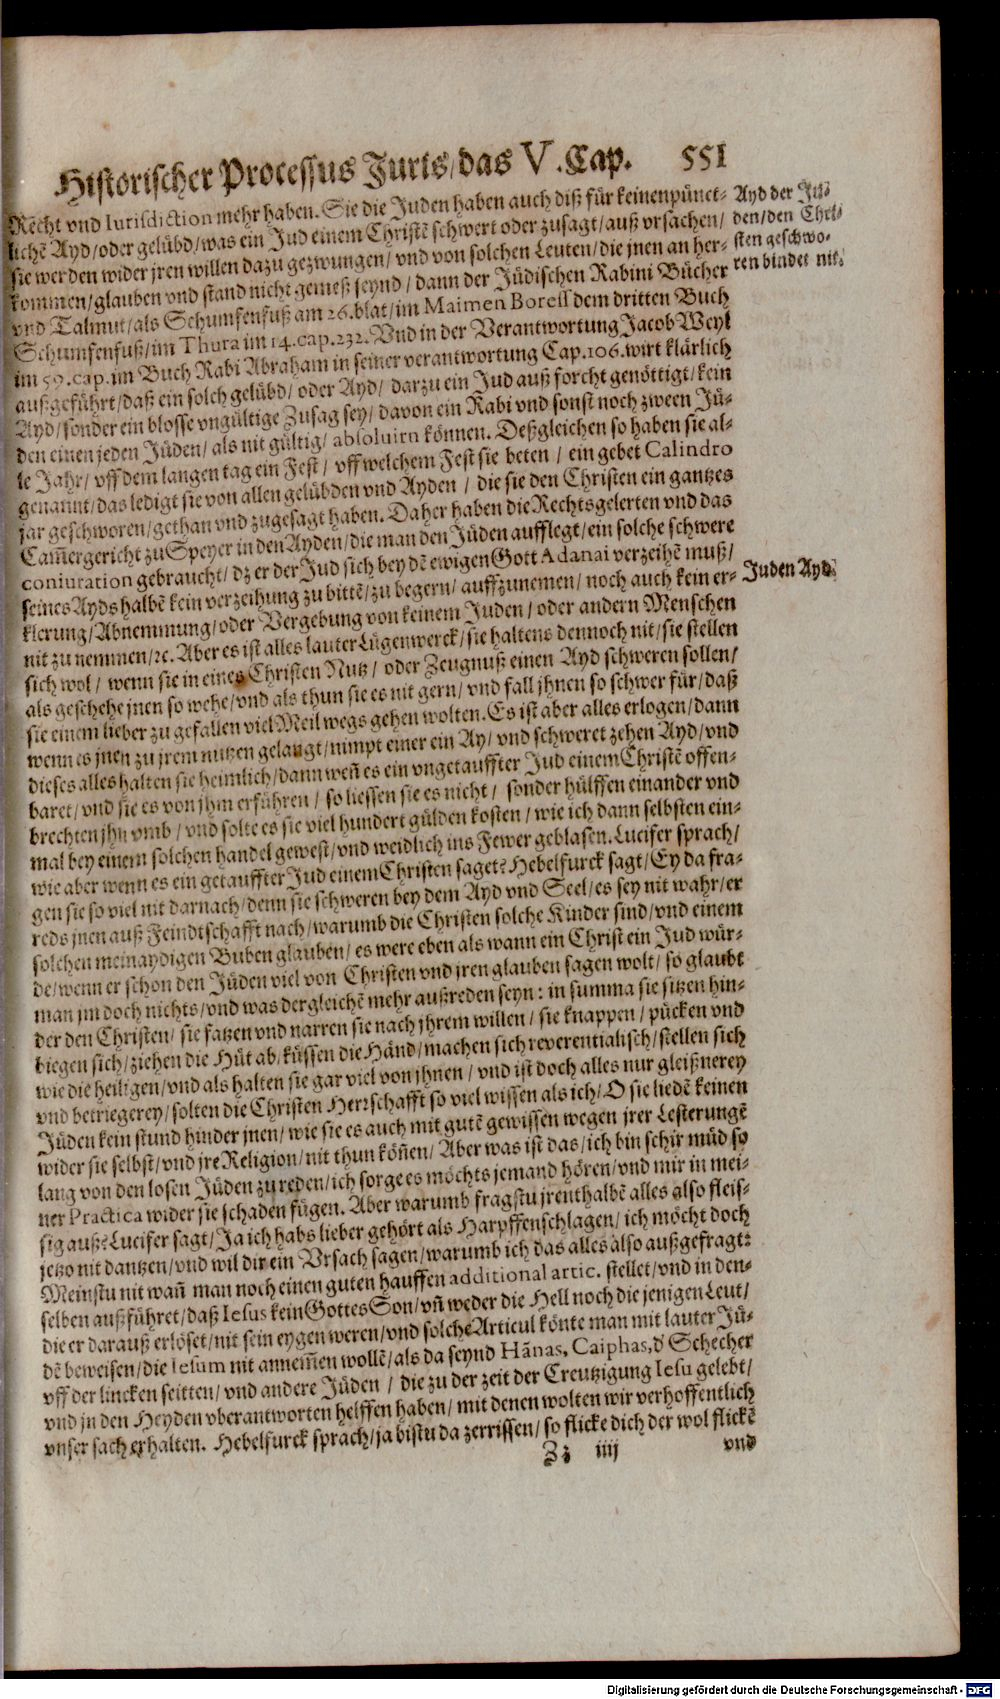 Historischer Processus Juris/das V. Cap. 551
Recht vnd Iurisdiction mehr haben. Sie die Juden haben auch diß für keinen pünct-
lichē Ayd/oder gelübd/was ein Jud einem Christē schwert oder zusagt/auß vrsachen/
sie werden wider jren willen dazu gezwungen/ vnd von solchen Leuten/die jnen an her-
kommen/glauben vnd stand nicht gemeß seynd/dann der Jüdischen Rabini Bücher
vnd Talmut/als Schumfenfuß am 26.blat/im Maimen Boress dem dritten Buch
Schumfenfuß/im Thura im 14.cap.232. Vnd in der Verantwortung Jacob Weyl
im 59.cap.im Buch Rabi Abraham in seiner verantwortung Cap.106.wirt klärlich
außgeführt/daß ein solch gelübd/ oder Ayd/ darzu ein Jud auß forcht genöttigt/kein
Ayd/sonder ein blosse vngültige Zusag sey/ davon ein Rabi vnd sonst noch zween Jü-
den einen jeden Jüden/ als nit gültig/ absoluirn können. Deßgleichen so haben sie al-
le Jahr/ vff dem langen tag ein Fest/ vff welchem Fest sie beten / ein gebet Calindro
genannt/das ledigt sie von allen gelübden vnd Ayden / die sie den Christen ein gantzes
jar geschworen/gethan vnd zugesagt haben. Daher haben die Rechtsgelerten vnd das
Cam̄ergericht zu Speyer in den Ayden/die man den Jüden aufflegt/ein solche schwere
coniuration gebraucht/ dz er der Jud sich bey dē ewigen Gott Adanai verzeihē muß/
seines Ayds halbē kein verzeihung zu bittē/zu begern/ auffzunemen/ noch auch kein er-
klerung/Abnemmung/oder Vergebung von keinem Juden/ oder andern Menschen
nit zu nemmen/ꝛc. Aber es ist alles lauter Lügenwerck/sie haltens dennoch nit/sie stellen
sich wol/ wenn sie in eines Christen Nutz/ oder Zeugnuß einen Ayd schweren sollen/
als geschehe jnen so wehe/vnd als thun sie es nit gern/ vnd fall jhnen so schwer für/daß
sie einem lieber zu gefallen viel Meil wegs gehen wolten. Es ist aber alles erlogen/dann
wenn es jnen zu jrem nutzen gelangt/nimpt einer ein Ay/ vnd schweret zehen Ayd/vnd
dieses alles halten sie heimlich/dann wen̄ es ein vngetauffter Jud einem Christē offen-
baret/vnd sie es von jhm erführen/ so liessen sie es nicht/ sonder hülffen einander vnd
brechten jhn vmb/ vnd solte es sie viel hundert gülden kosten/ wie ich dann selbsten ein-
mal bey einem solchen handel gewest/vnd weidlich ins Fewer geblasen. Lucifer sprach/
wie aber wenn es ein getauffter Jud einem Christen saget? Hebelfurck sagt/ Ey da fra-
gen sie so viel nit darnach/denn sie schweren bey dem Ayd vnd Seel/es sey nit wahr/er
reds jnen auß Feindtschafft nach/warumb die Christen solche Kinder sind/vnd einem
solchen meinaydigen Buben glauben/ es were eben als wann ein Christ ein Jud wür-
de/wenn er schon den Jüden viel von Christen vnd jren glauben sagen wolt/ so glaubt
man jm doch nichts/vnd was dergleichē mehr außreden seyn: in summa sie sitzen hin-
der den Christen/ sie fatzen vnd narren sie nach jhrem willen/ sie knappen/ pücken vnd
biegen sich/ziehen die Hüt ab/küssen die Händ/machen sich reverentialisch/stellen sich
wie die heiligen/vnd als halten sie gar viel von jhnen/ vnd ist doch alles nur gleißnerey
vnd betriegerey/solten die Christen Herrschafft so viel wissen als ich/O sie liedē keinen
Jüden kein stund hinder jnen/ wie sie es auch mit gutē gewissen wegen jrer Lesterungē
wider sie selbst/vnd jre Religion/nit thun kön̄en/ Aber was ist das/ich bin schir müd so
lang von den losen Jüden zu reden/ich sorge es möchts jemand hören/vnd mir in mei-
ner Practica wider sie schaden fügen. Aber warumb fragstu jrenthalbē alles also fleis-
sig auß? Lucifer sagt/Ja ich habs lieber gehört als Harpffenschlagen/ ich möcht doch
jetzo nit dantzen/vnd wil dir ein Vrsach sagen/warumb ich das alles also außgefragt:
Meinstu nit wan̄ man noch einen guten hauffen additional artic. stellet/vnd in den-
selben außführet/daß Iesus kein Gottes Son/vn̄ weder die Hell noch die jenigen Leut/
die er darauß erlöset/nit sein eygen weren/vnd solche Articul könte man mit lauter Jü-
dē beweisen/die Iesum nit annem̄en wollē/als da seynd Hānas, Caiphas, d' Schecher
vff der lincken seitten/ vnd andere Jüden / die zu der zeit der Creutzigung Iesu gelebt/
vnd jn den Heyden vberantworten helffen haben/ mit denen wolten wir verhoffentlich
vnser sach erhalten. Hebelfurck sprach/ja bistu da zerrissen/so flicke dich der wol flickē
Zz iiij
vnd
Ayd der Jü-
den/den Chri-
sten geschwo-
ren bindet nit.
Juden Ayd.
Digitalisierung gefördert durch die Deutsche Forschungsgemeinschaft - DFG